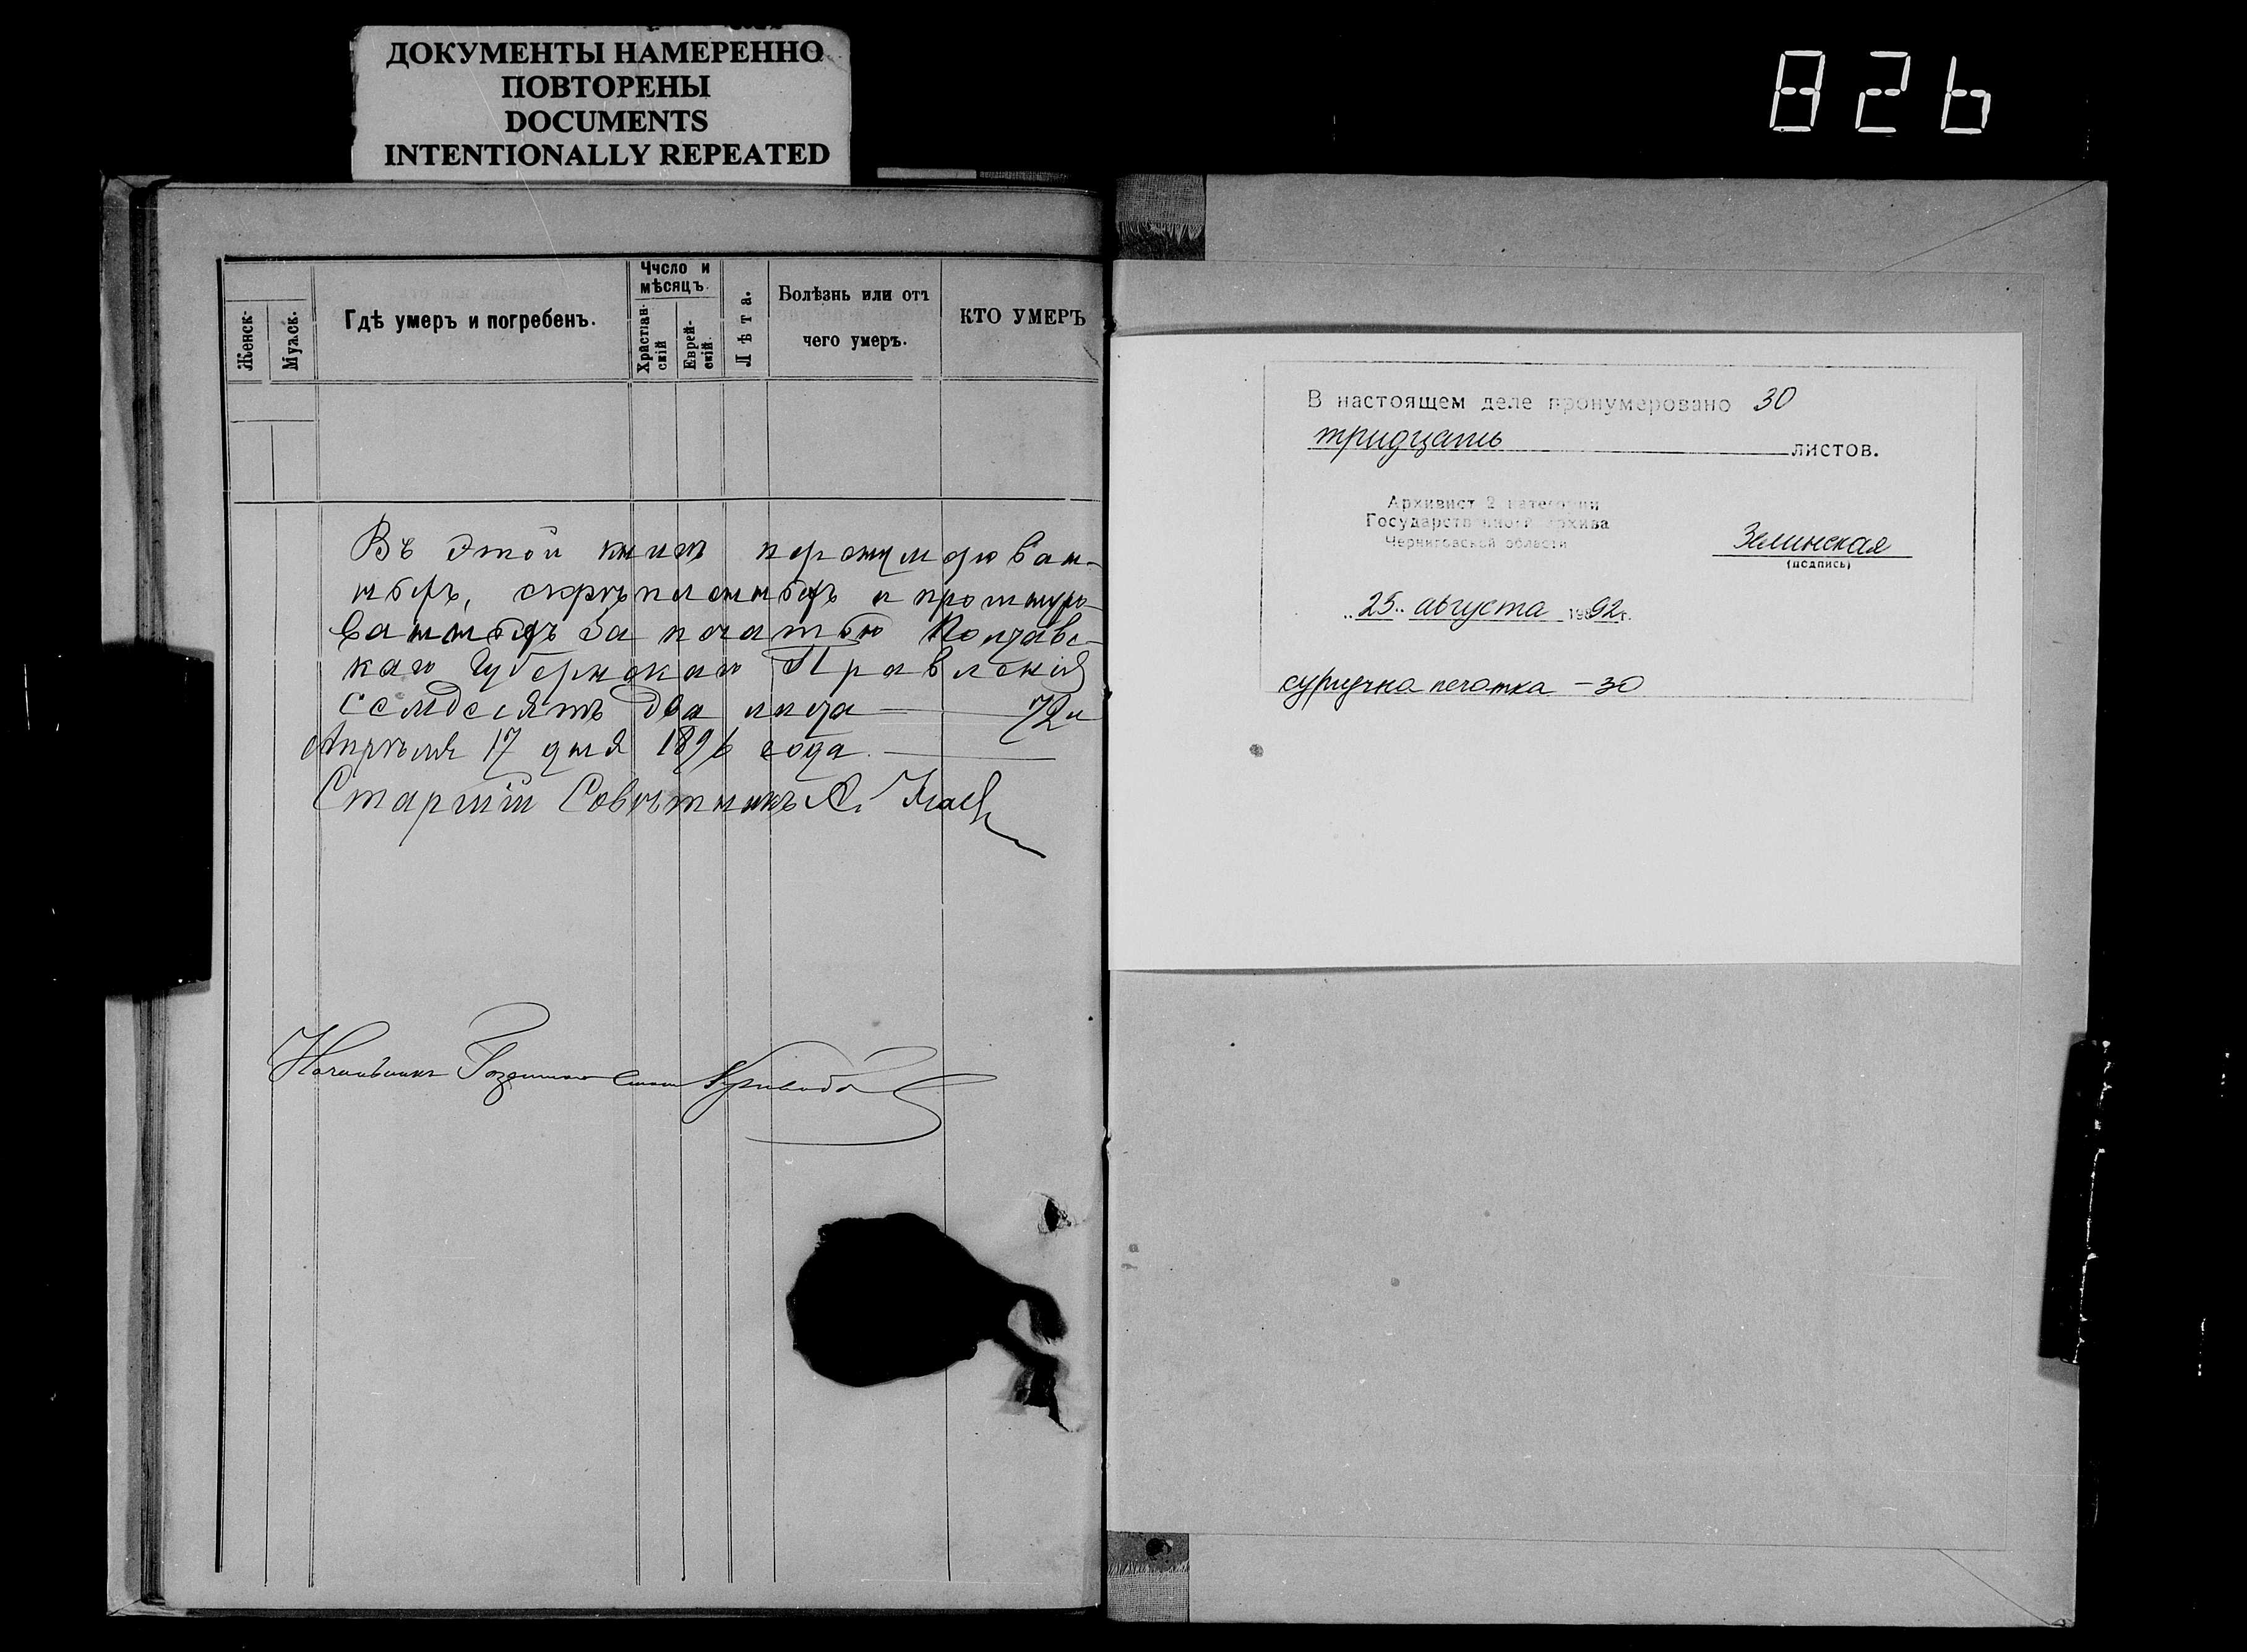 ДОКУМЕНТЫ НАМЕРЕННО
ПОВТОРЕНЫ
DOCUMENTS
INTENTIONALLY REPEATED
826
Женск.
Мужск.
Гдѣ умеръ и погребенъ.
Число и мѣсяцъ.
Христіанскій
Еврейскій.
Лѣта.
Болѣзнь или отъ
чего умеръ.
КТО УМЕРЪ
Въ этой книгѣ
скрѣпленныхъ и прошнуро-
ванныхъ за печатью
каго Губернскаго Правленія
семдесятъ два листа — 72 л
Апрѣля 17 дня 1896 года.
Старшій Совѣтникъ А.
Начальникъ
В настоящем деле пронумеровано 30
тридцать листов.
Архивист 2 категории
Государственного архива
Черниговской области
Зелинская
(подпись)
„25„ августа 1992 г.
сургучна печатка – 30